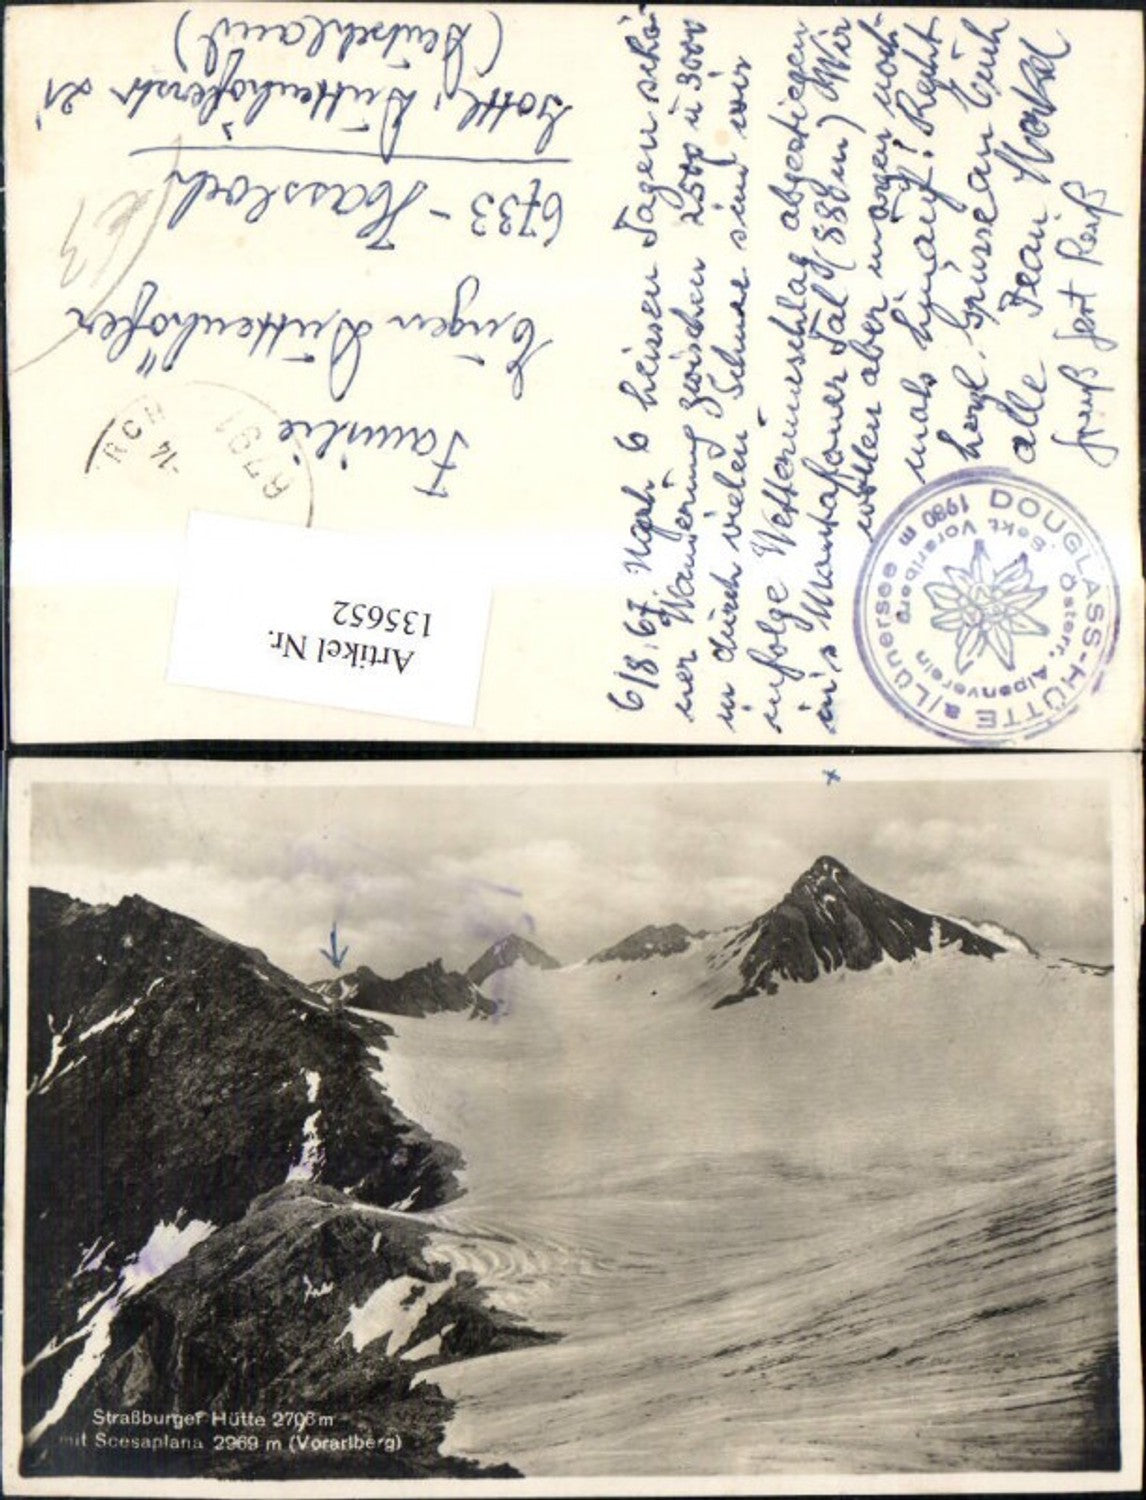 6/8.67. Nach 6 heissen Tagen schö-
ner Wanderung zwischen 2500 u 3000
m durch vielen Schnee sind wir
infolge Wetterumschlag abgestiegen
in's Montafoner Tal (880 m) Wir
wollen aber morgen noch-
mals hinauf! Recht
herzl. Grüsse an Euch
alle
Gruß Gert
DOUGLASS-HÜTTE a/LÜNERSEE
1980 m
Österr. Alpenverein
Sekt. Vorarlberg
Familie
Eugen Düttenhöfer
6733 - Hassloch
Gottl. Düttenhöferstr. 21
(Deutschland)
6791
Artikel Nr.
135652
Straßburger Hütte 2706m
mit Scesaplana 2969 m (Vorarlberg)